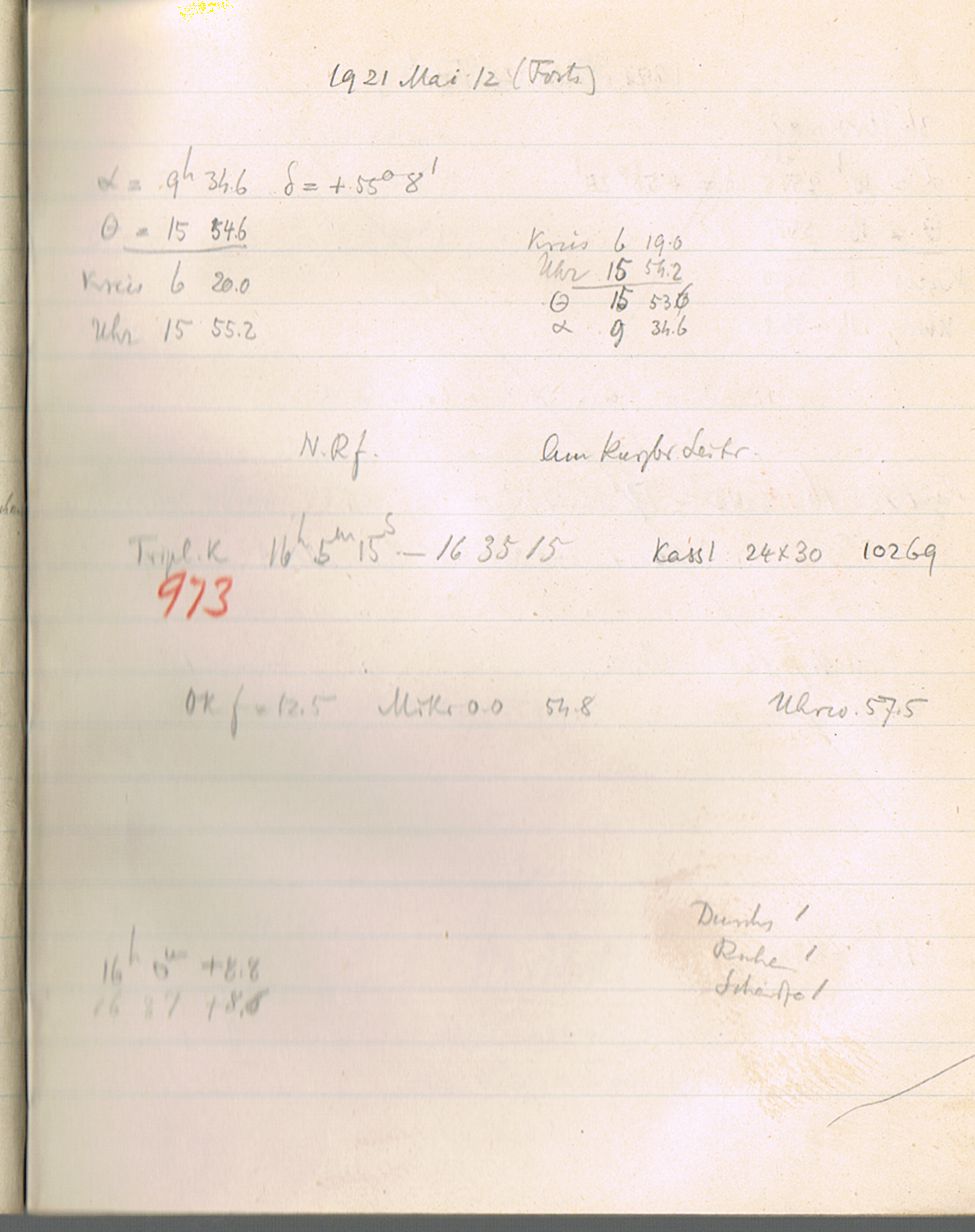 1921 Mai 12 (Forts)
α = 9h 34.6 δ = +55° 8'
Θ = 15 54.6
Kreis 6 20.0
Uhr 15 55.2
Kreis 6 19.0
Uhr 15 54.2
Θ 15 53.6
α 9 34.6
N. Rf.
Tripl. K 16h 5m 15s — 16 35 15 Kass 1 24x30 10269
973
OK f = 12.5 Mikr 0.0 54.8 Uhrw. 57.5
16h 5m +8.8
16 37 +8.6
Durchs 1
Ruhe 1
Schärfe 1